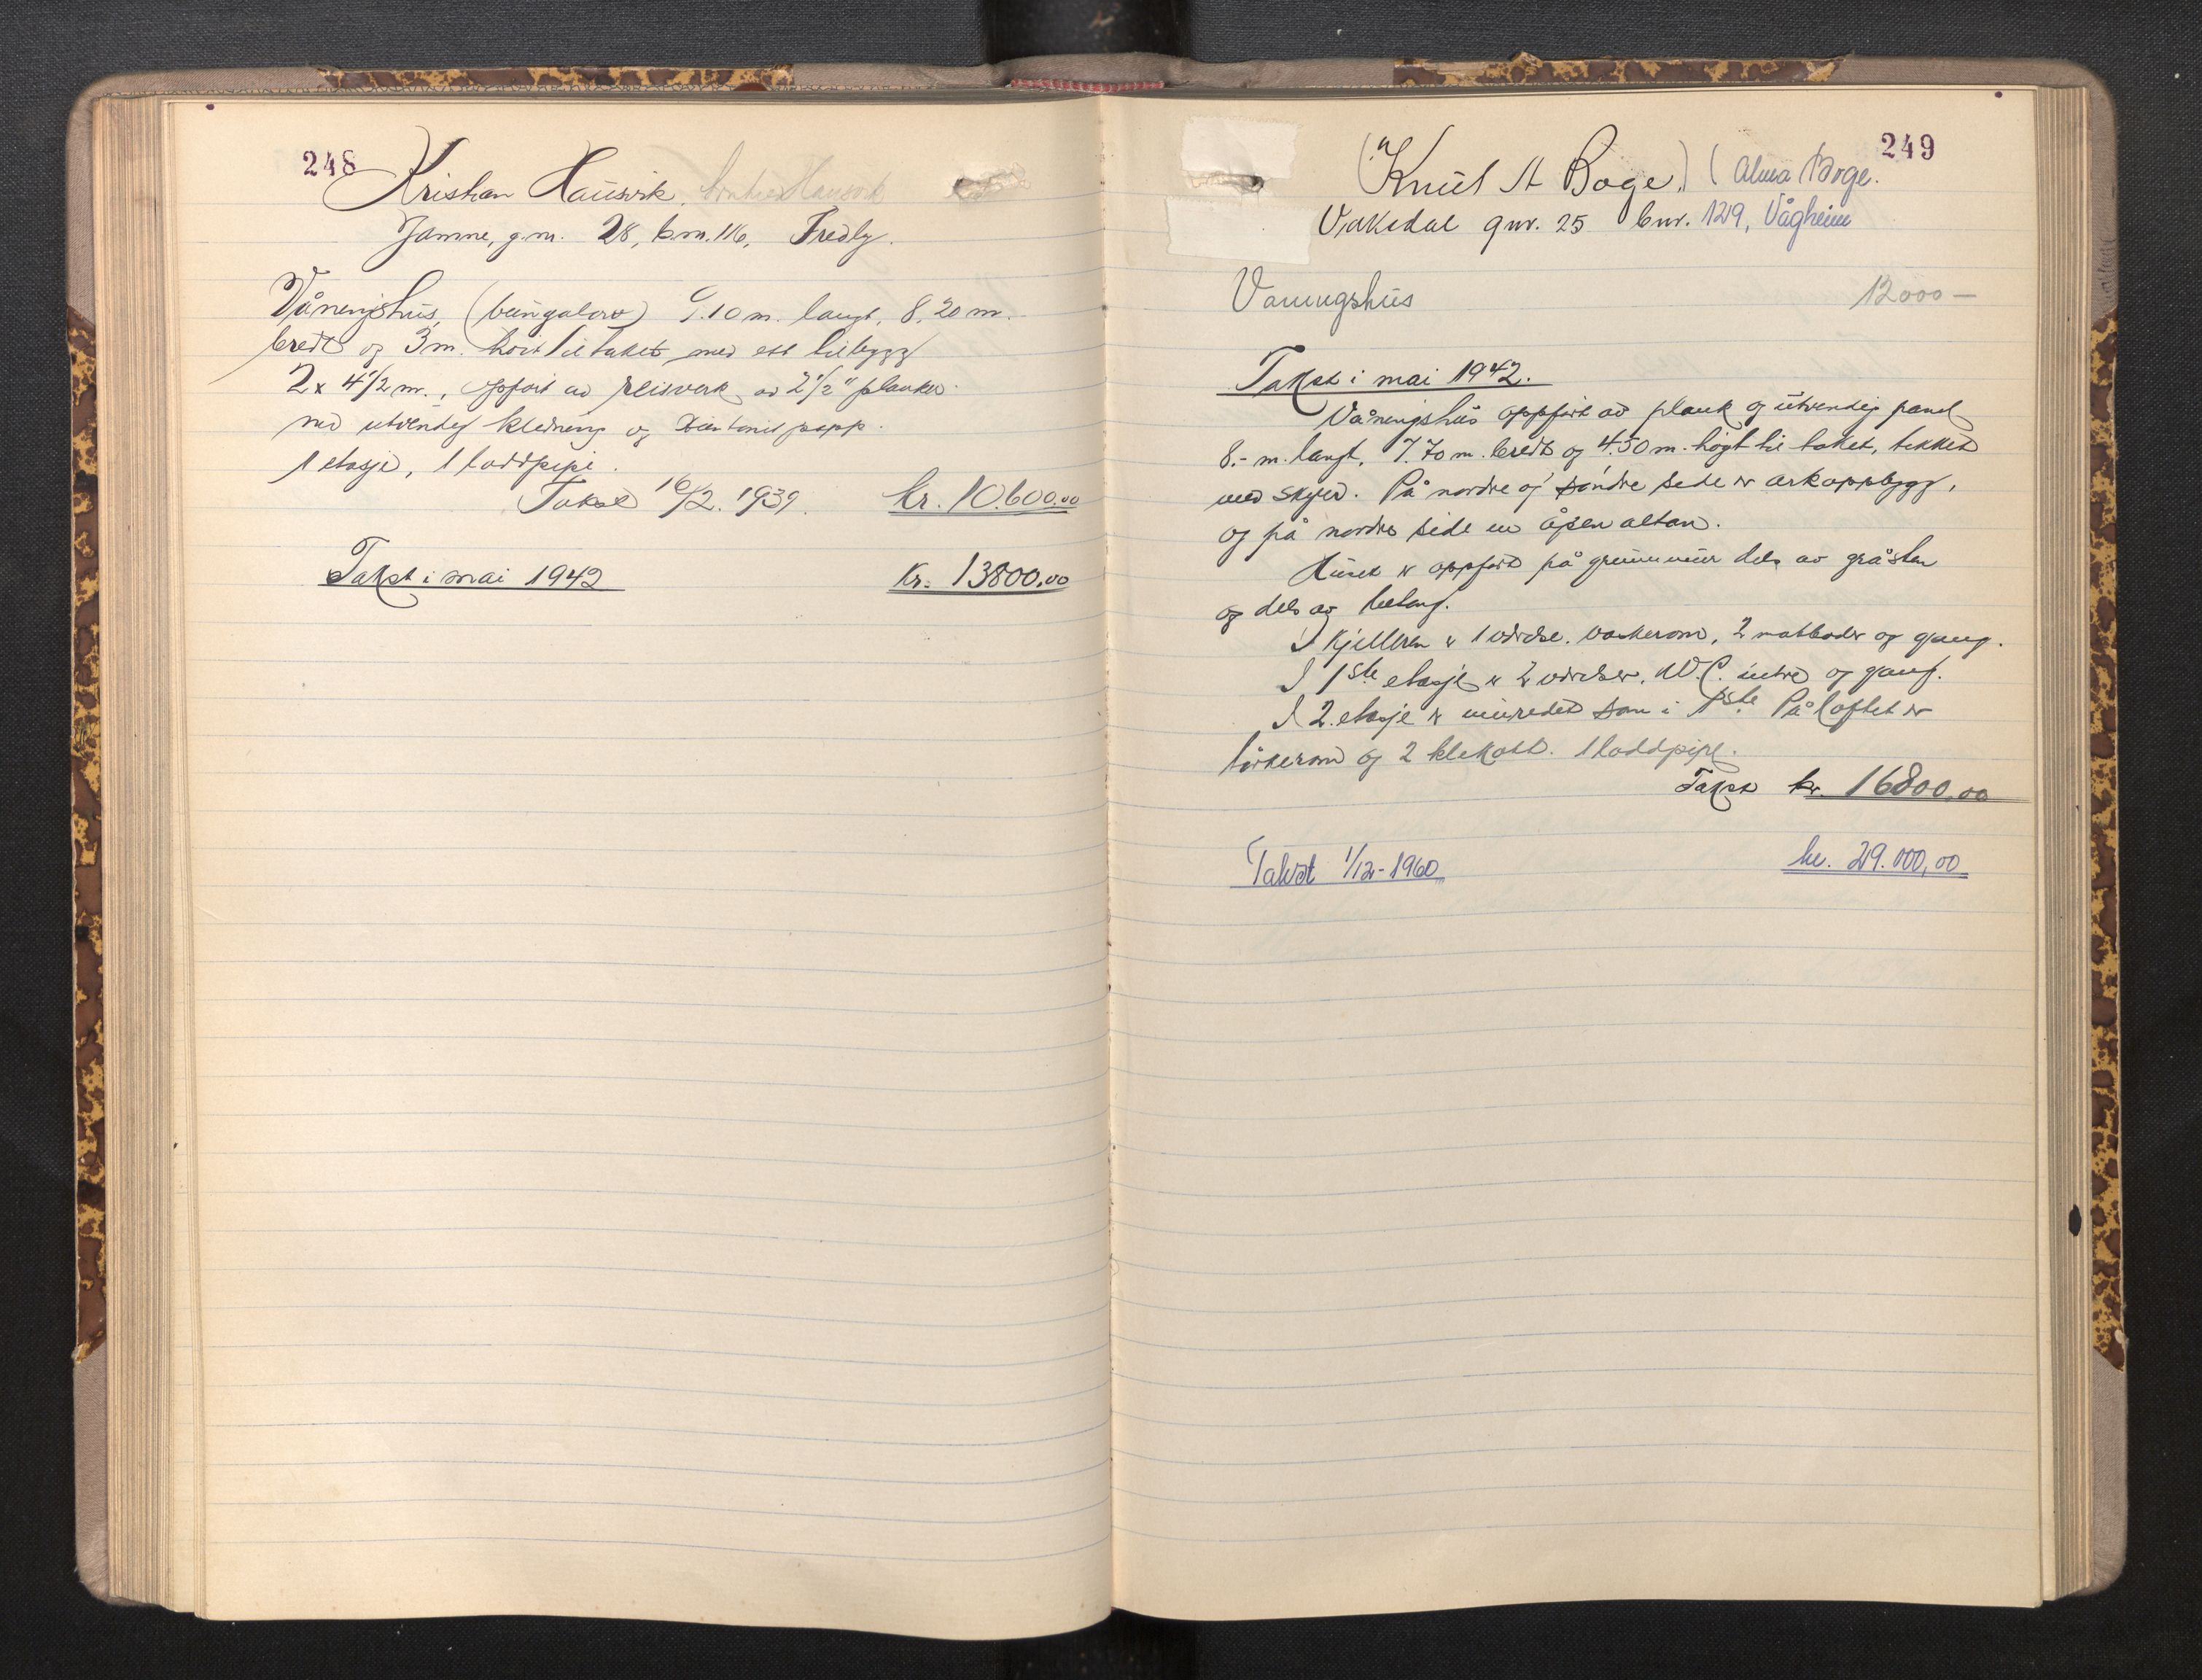 248
Kristian Hausvik,
Jamne, g.nr. 28, b.nr. 116, Fredly.
Våningshus, (bungalow) 9.10 m. langt, 8.20 m.
bredt og 3 m. høit til taket med ett tilbygg
2 x 4 1/2 m., opført av reisverk av 2 1/2" planker
med utvendig kledning og papp.
1 etasje, 1 loddpipe.
Takst 16/2. 1939. kr. 10.600.00
Takst i mai 1942 kr. 13800.00
249
(Knut A Boge.) (Alma Boge.
Vaksdal gnr. 25 bnr. 129, Vågheim
Vaningshus 12000 —
Takst i mai 1942.
Våningshus oppført av plank og utvendig panel
8.- m. langt, 7.70 m. bredt og 4.50 m. høgt til taket, tekket
med skifer. På nordre og søndre side er arkoppbygg,
og på nordre side en åpen altan.
Huset er oppført på grunnmur dels av gråsten
og dels av betong.
I kjelleren er 1 værelse, vaskerom, 2 matboder og gang.
I 1ste etasje er 2 værelser, W.C. entre og gang.
I 2. etasje er innredet som i 1ste På loftet er
tørkerom og 2 klekott. 1 loddpipe.
Takst kr. 16800,00
Takst 1/12-1960 kr. 29.000,00